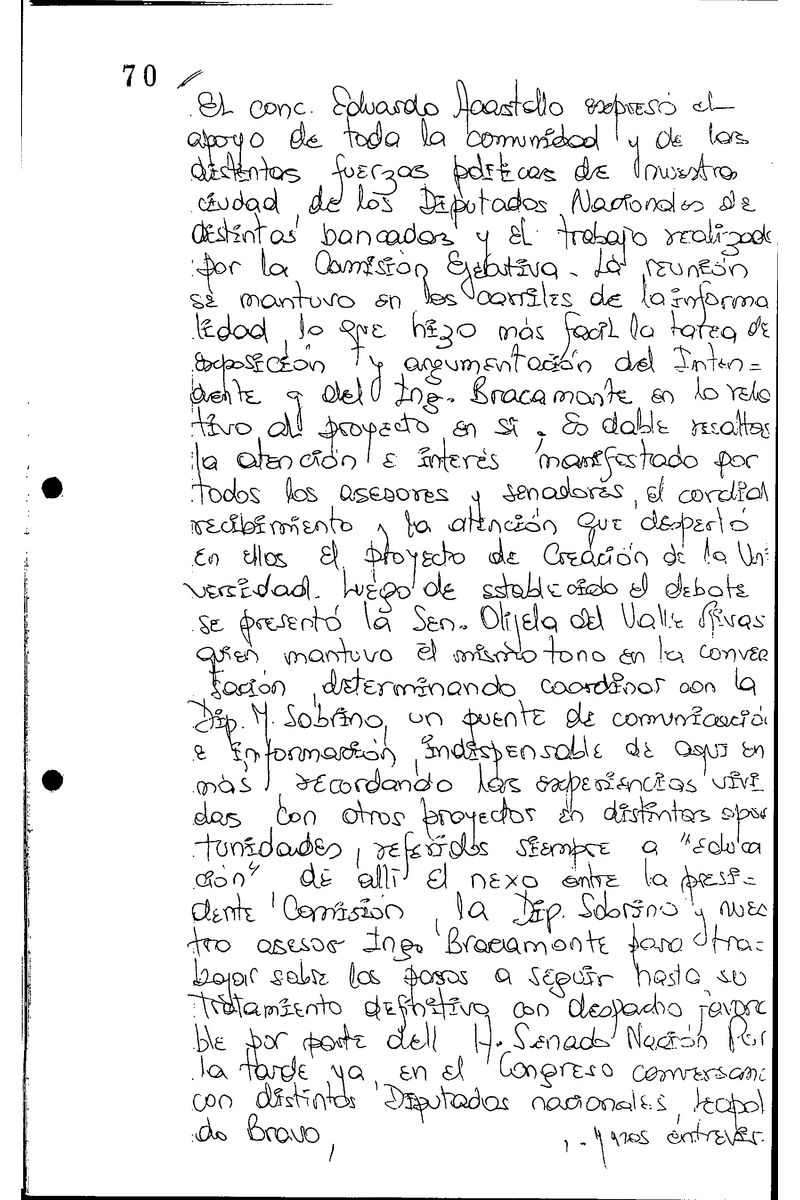 70
El conc. Eduardo Accastello expresó el
apoyo de toda la comunidad y de las
distintas fuerzas políticas de nuestra
ciudad, de los Diputados Nacionales de
distintas bancadas y el trabajo realizado
por la Comisión Ejecutiva. La reunión
se mantuvo en los carriles de la informa
lidad, lo que hizo más facil la tarea de
exposición y argumentación del Inten=
dente y del Ing. Bracamonte en lo rela
tivo al proyecto en si. Es dable resaltar
la atención e interés manifestado por
todos los asesores y senadores, el cordial
recibimiento y la atención que despertó
en ellos el proyecto de Creación de la Uni
versidad. Luego de establecido el debate
se presentó la Sen. Olijela del Valle Rivas
quien mantuvo el mismo tono en la conver
sación, determinando coordinar con la
Dip. M. Sobrino, un puente de comunicació
e información, indispensable de aqui en
más, recordando las experiencias vivi
das con otros proyectos en distintas opor
tunidades, referidos siempre a "educa
ción" de allí el nexo entre la presi=
dente Comisión, la Dip. Sobrino y nues
tro asesor Ing. Bracamonte para tra=
bajar sobre los pasos a seguir hasta su
tratamiento definitivo con despacho favora
ble por parte dell H. Senado Nación Por
la tarde ya, en el Congreso conversam
con distintos Diputados nacionales, Leopol
do Bravo, y nos entrevis.